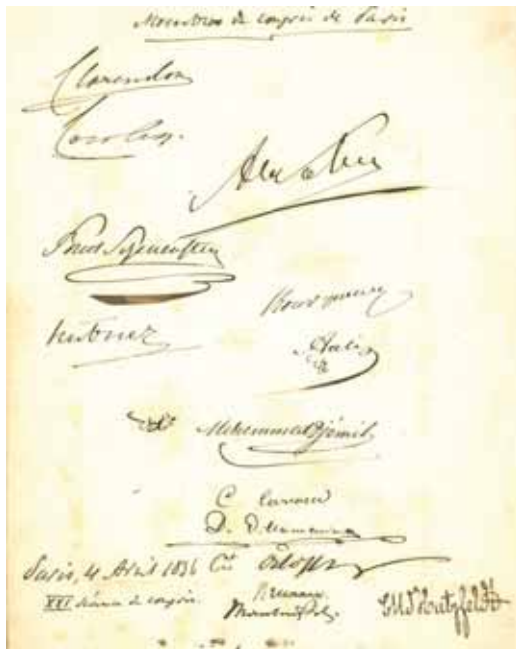 Membres du congrès de Paris
Clarendon
Cowley
Buol Schauenstein
Bourqueney
Hübner
Aali
Mehemmed Djémil
C. Cavour
D. Villamarina
Paris, 4 Avril 1856 Cte Orloff
XXI séance du congrès. Brunnow
Manteuffel
C M d'Hatzfeldt